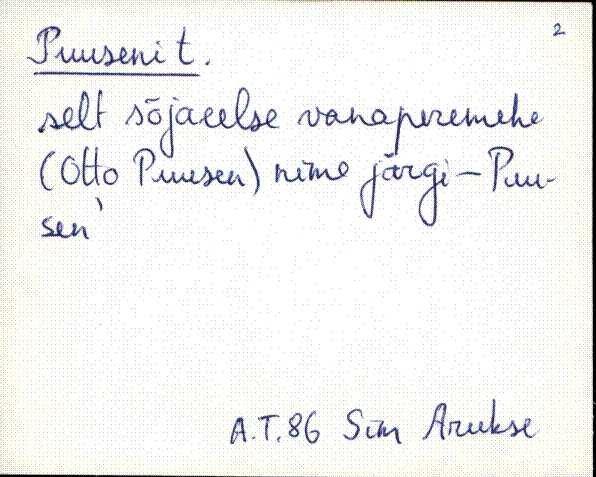 2
Puuseni t.
selt sõjaeelse vanaperemehe
(Otto Puusen) nime järgi – Puu-
sen`
A.T. 86 Sim Arukse